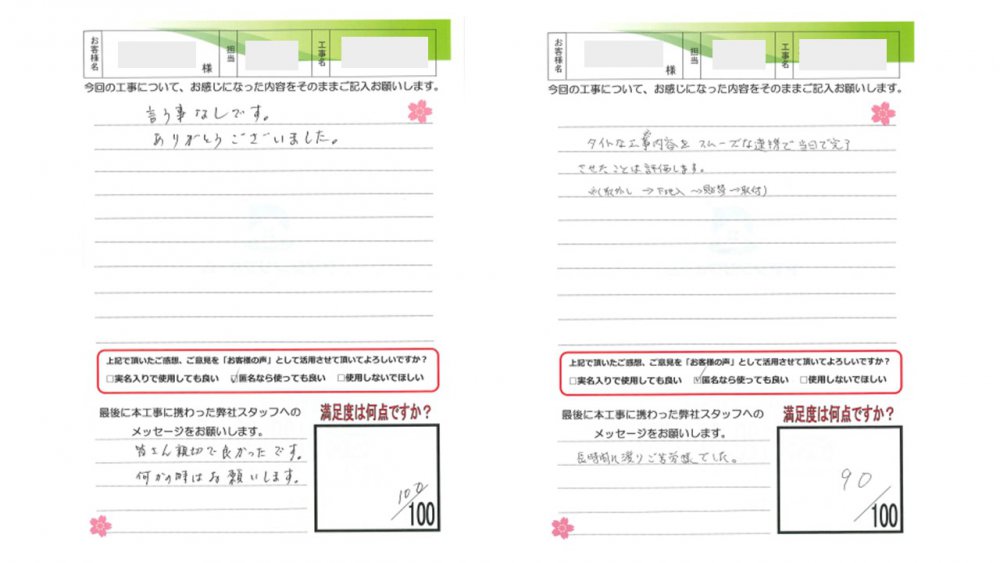 お客様名
様
担当
工事名
今回の工事について、お感じになった内容をそのままご記入お願いします。
言う事なしです。
ありがとうございました。
上記で頂いたご感想、ご意見を「お客様の声」として活用させて頂いてよろしいですか？
□実名入りで使用しても良い ☑匿名なら使っても良い □使用しないでほしい
最後に本工事に携わった弊社スタッフへの
メッセージをお願いします。
皆さん親切で良かったです。
何かの時はお願いします。
満足度は何点ですか？
100/100
お客様名
様
担当
工事名
今回の工事について、お感じになった内容をそのままご記入お願いします。
タイトな工事内容を スムーズな連携で当日で完了
させたことは評価します。
(取外し → 下地入 → → 取付)
上記で頂いたご感想、ご意見を「お客様の声」として活用させて頂いてよろしいですか？
□実名入りで使用しても良い ☑匿名なら使っても良い □使用しないでほしい
最後に本工事に携わった弊社スタッフへの
メッセージをお願いします。
長時間に渡りご苦労様でした。
満足度は何点ですか？
90/100